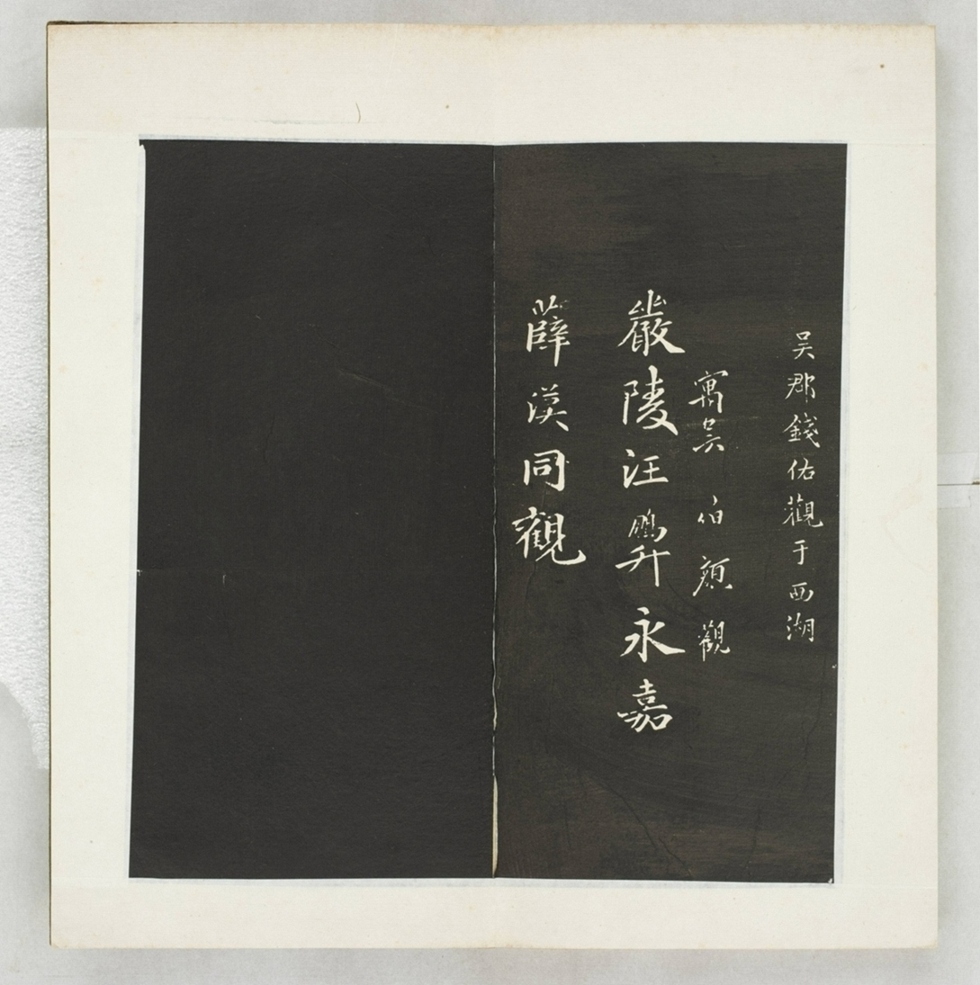 吴郡錢佑觀于西湖
寓吴伯顔觀
嚴陵汪鵬昇永嘉
薛漢同觀